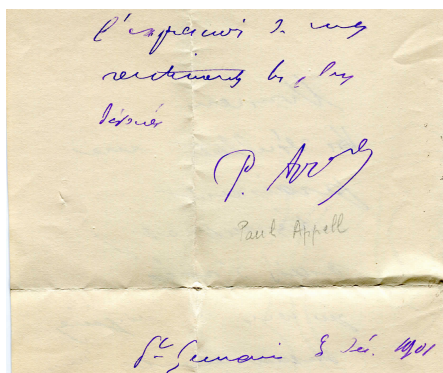 l'expression de mes
sentiments les plus
dévoués
P. Appell
Paul Appell
St Germain 3 Déc. 1901